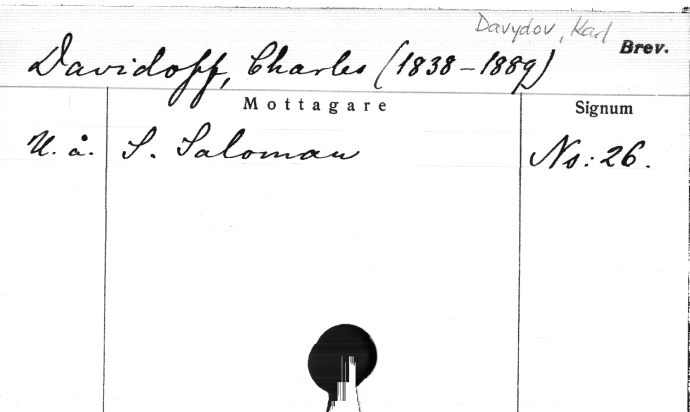 Davydov, Karl
Brev.
Davidoff, Charles (1838-1889)
Mottagare
Signum
U. å. S. Saloman No: 26.